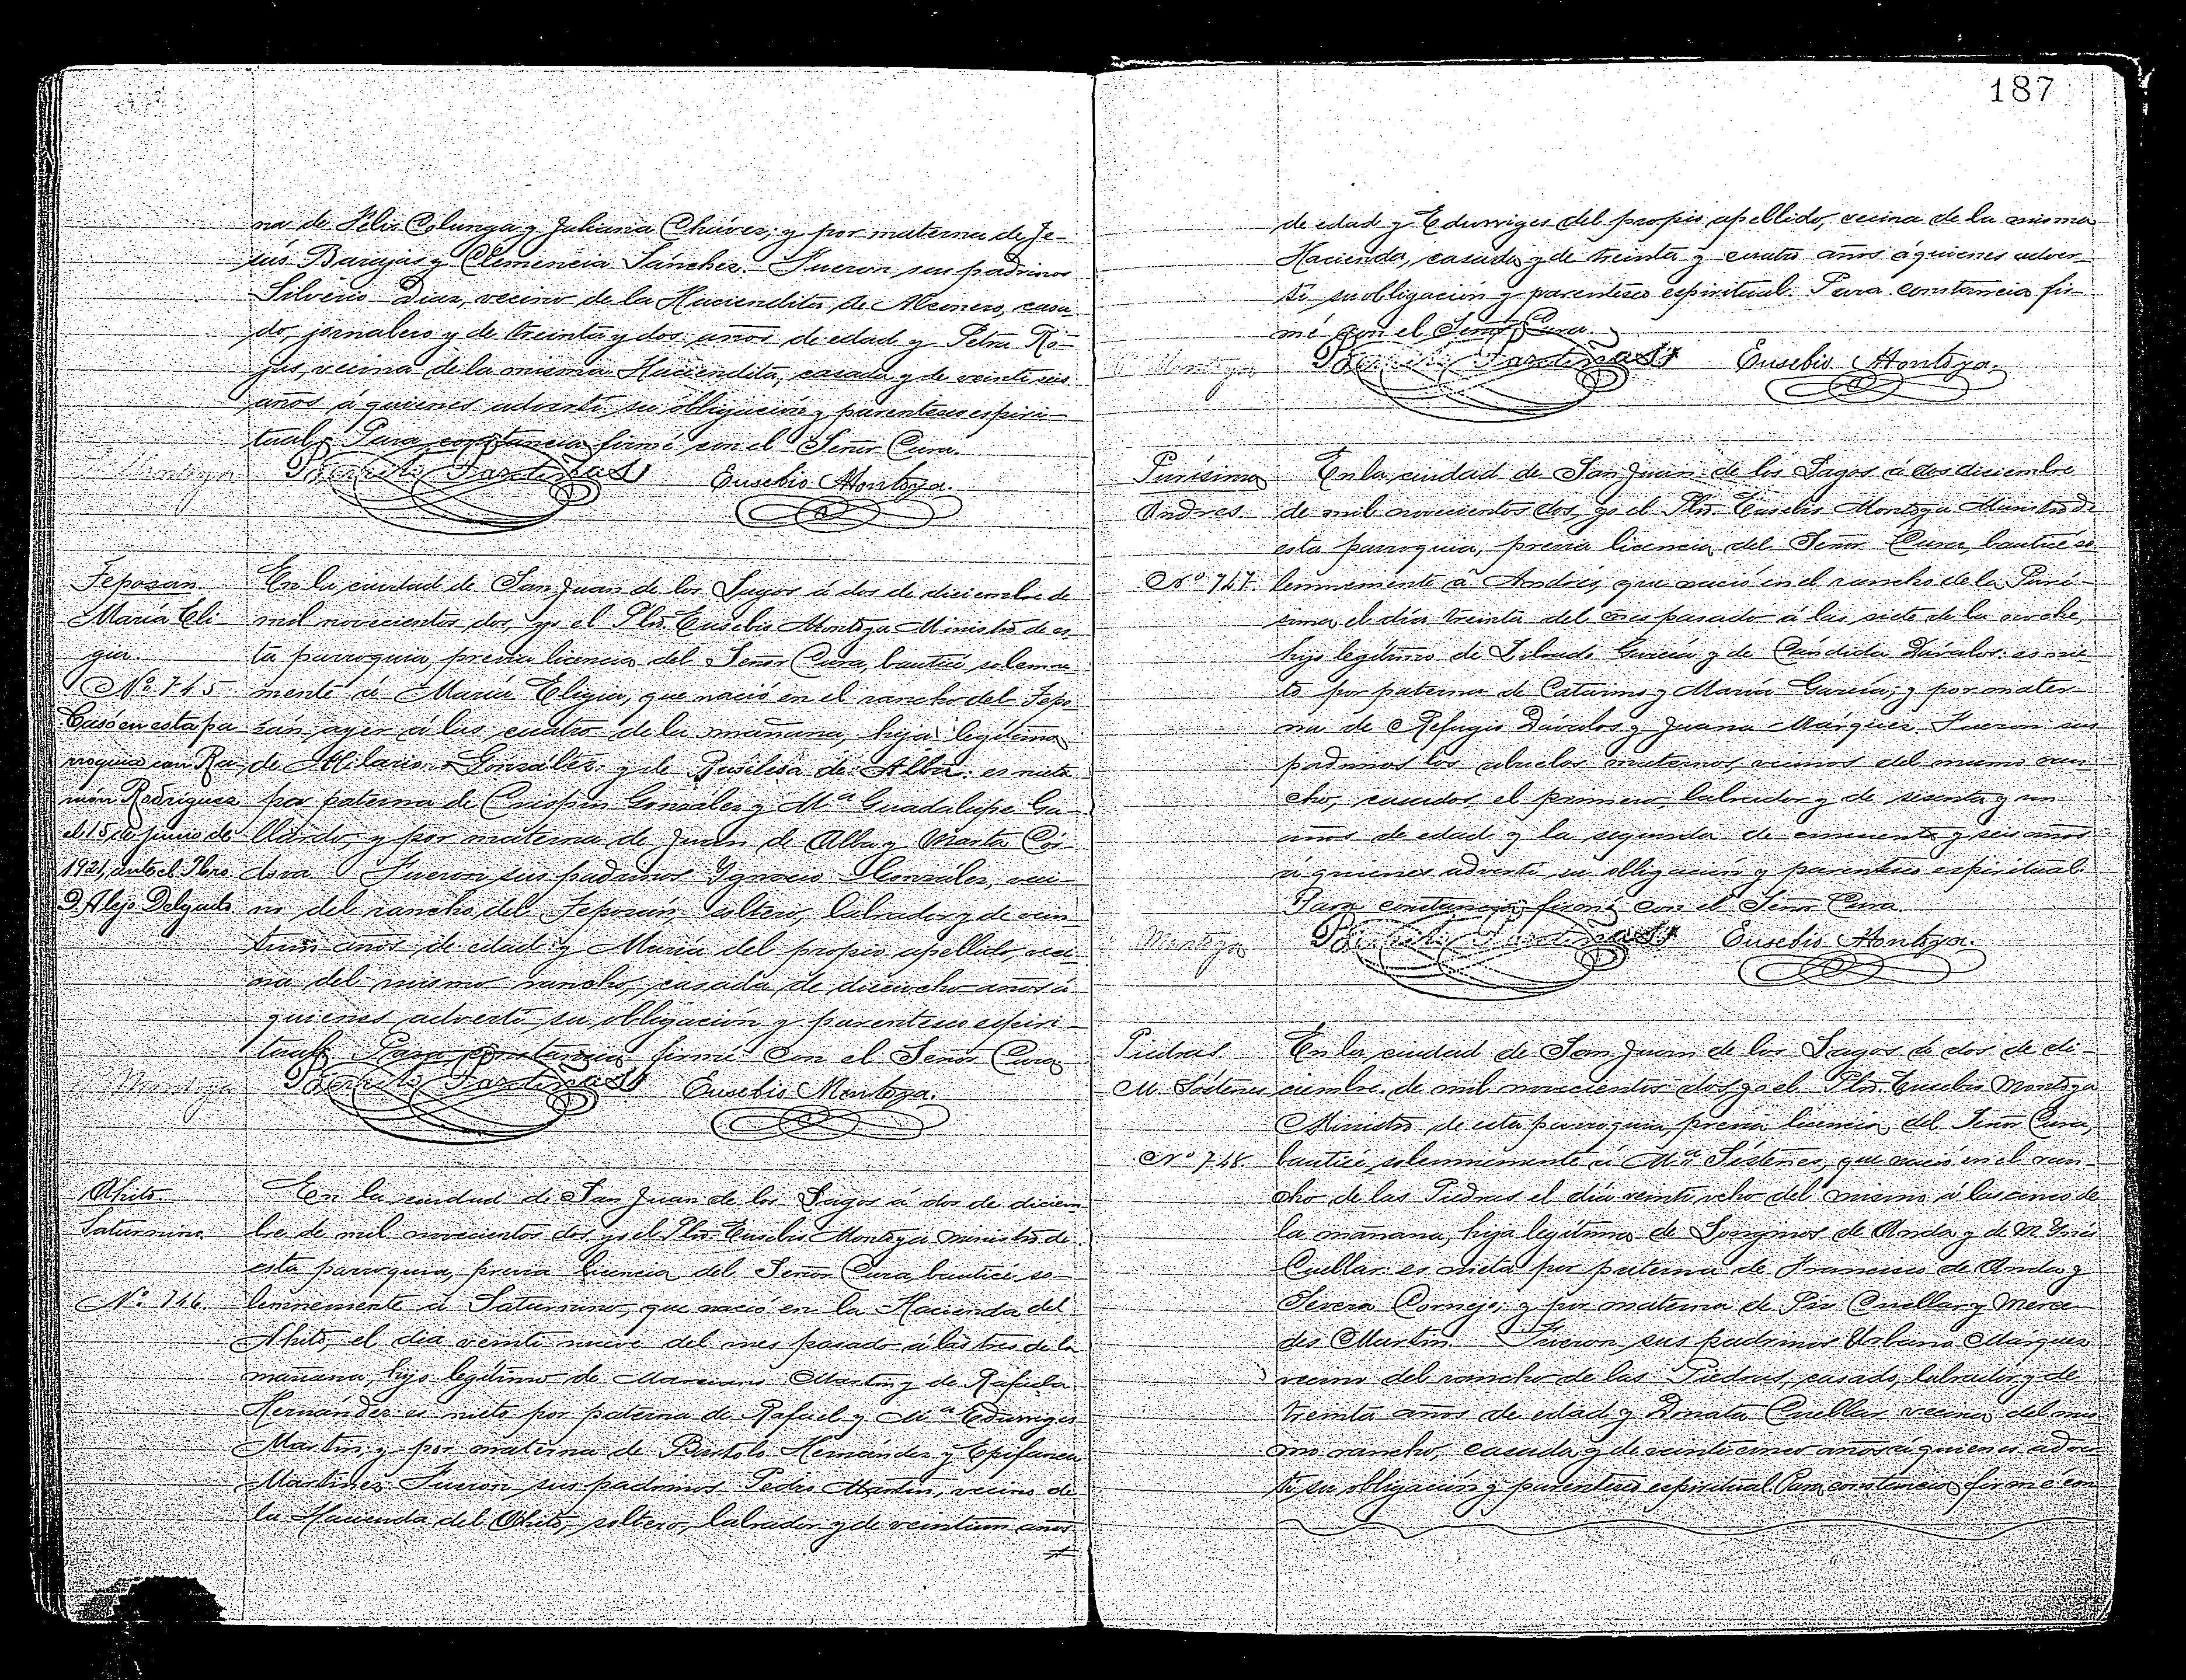 na de Felix Colunga y Juliana Chávez; y por materna de Je-
sús Barajas y Clemencia Sánchez. Fueron sus padrinos
Silverio Diaz, vecino de la Haciendita de Alconero, casa
do, jornalero y de treinta y dos años de edad y Petra Ro-
jas, vecina de la misma Haciendita, casada y de veinte seis
años á quienes advertí su obligación y parentesco espiri-
tual. Para constancia firmé con el Señor Cura.
Montoya
Eusebio Montoya.
Teposan
María Eli-
gia.
No. 745
Casó en esta pa
rroquia con Ra-
món Rodríguez
el 15 de junio de
1921, ante el Pbro.
D. Alejo Delgado
En la ciudad de San Juan de los Lagos á dos de diciembre de
mil novecientos dos, yo el Pbro. Eusebio Montoya Ministro de es-
ta parroquia, previa licencia del Señor Cura, bauticé solemne
mente á María Eligia, que nació en el rancho del Tepo-
zán, ayer á las cuatro de la mañana, hija legítima
de Hilario González y de de Alba: es nieta
por paterna de Crispin González y Ma. Guadalupe Ga-
llardo; y por materna de Juan de Alba y Marta Cór-
dova. Fueron sus padrinos Ygnacio González, veci-
no del rancho del Teposán, soltero, labrador y de vein
tiun años de edad y María del propio apellido, veci-
na del mismo rancho, casada, de dieciocho años á
quienes advertí su obligación y parentesco espiri-
tual. Para constancia firmé con el Señor Cura
Montoya
Eusebio Montoya.
Ahito.
Saturnino.
No. 746.
En la ciudad de San Juan de los Lagos á dos de diciem
bre de mil novecientos dos, yo el Pbro. Eusebio Montoya ministro de
esta parroquia, previa licencia del Señor Cura bauticé so-
lemnemente á Saturnino, que nació en la Hacienda del
Ahito, el dia veinte nueve del mes pasado á las tres de la
mañana, hijo legítimo de Marciano Martin y de Rafaela
Hernández: es nieto por paterna de Rafael y Ma. Eduviges
Martin, y por materna de Bartolo Hernández y Epifanea
Martinez. Fueron sus padrinos Pedro Martin, vecino de
la Hacienda del Ahito, soltero, labrador y de veintiun años
187
de edad y Eduwiges del propio apellido, vecina de la misma
Hacienda, casada y de treinta y cuatro años á quienes adver-
tí su obligación y parentesco espiritual. Para constancia fir-
mé con el Señor Cura.
Montoya
Eusebio Montoya.
Purísima
Andres.
No. 747.
En la ciudad de San Juan de los Lagos á dos diciembre
de mil novecientos dos, yo el Pbro. Eusebio Montoya Ministro de
esta parroquia, previa licencia del Señor Cura, bauticé so
lemnemente á Andrés, que nació en el rancho de la Purí-
sima el día treinta del mes pasado á las siete de la noche,
hijo legítimo de Librado García y de Cándida Dávalos: es nie-
to por paterna de Catarino y María García; y por mater-
na de Refugio Dávalos y Juana Márquez. Fueron sus
padrinos los abuelos maternos, vecinos del mismo ran
cho, casados, el primero, labrador y de sesenta y un
años de edad y la segunda de cincuenta y seis años
á quienes advertí su obligación y parentesco espiritual.
Para constancia firmé con el Señor Cura.
Montoya
Eusebio Montoya.
Piedras.
M. Sóstenes
No. 748.
En la ciudad de San Juan de los Lagos á dos de di-
ciembre de mil novecientos dos, yo el Pbro. Eusebio Montoya
Ministro de esta parroquia, previa licencia del Señor Cura,
bauticé solemnemente á Ma. Sóstenes, que nació en el ran-
cho de las Piedras el día veintiocho del mismo á las cinco de
la mañana, hija legítima de Longinos de Anda y de M. Ynés
Cuellar: es nieta por paterna de Francisco de Anda y
Severa Cornejo; y por materna de Pio Cuellar y Merce-
des Martin. Fueron sus padrinos Urbano Márquez
vecino del rancho de las Piedras, casado, labrador y de
treinta años de edad y Donata Cuellar vecina del mis
mo rancho, casada y de veinticinco años á quienes adver
tí su obligación y parentesco espiritual. Para constancia firmé con